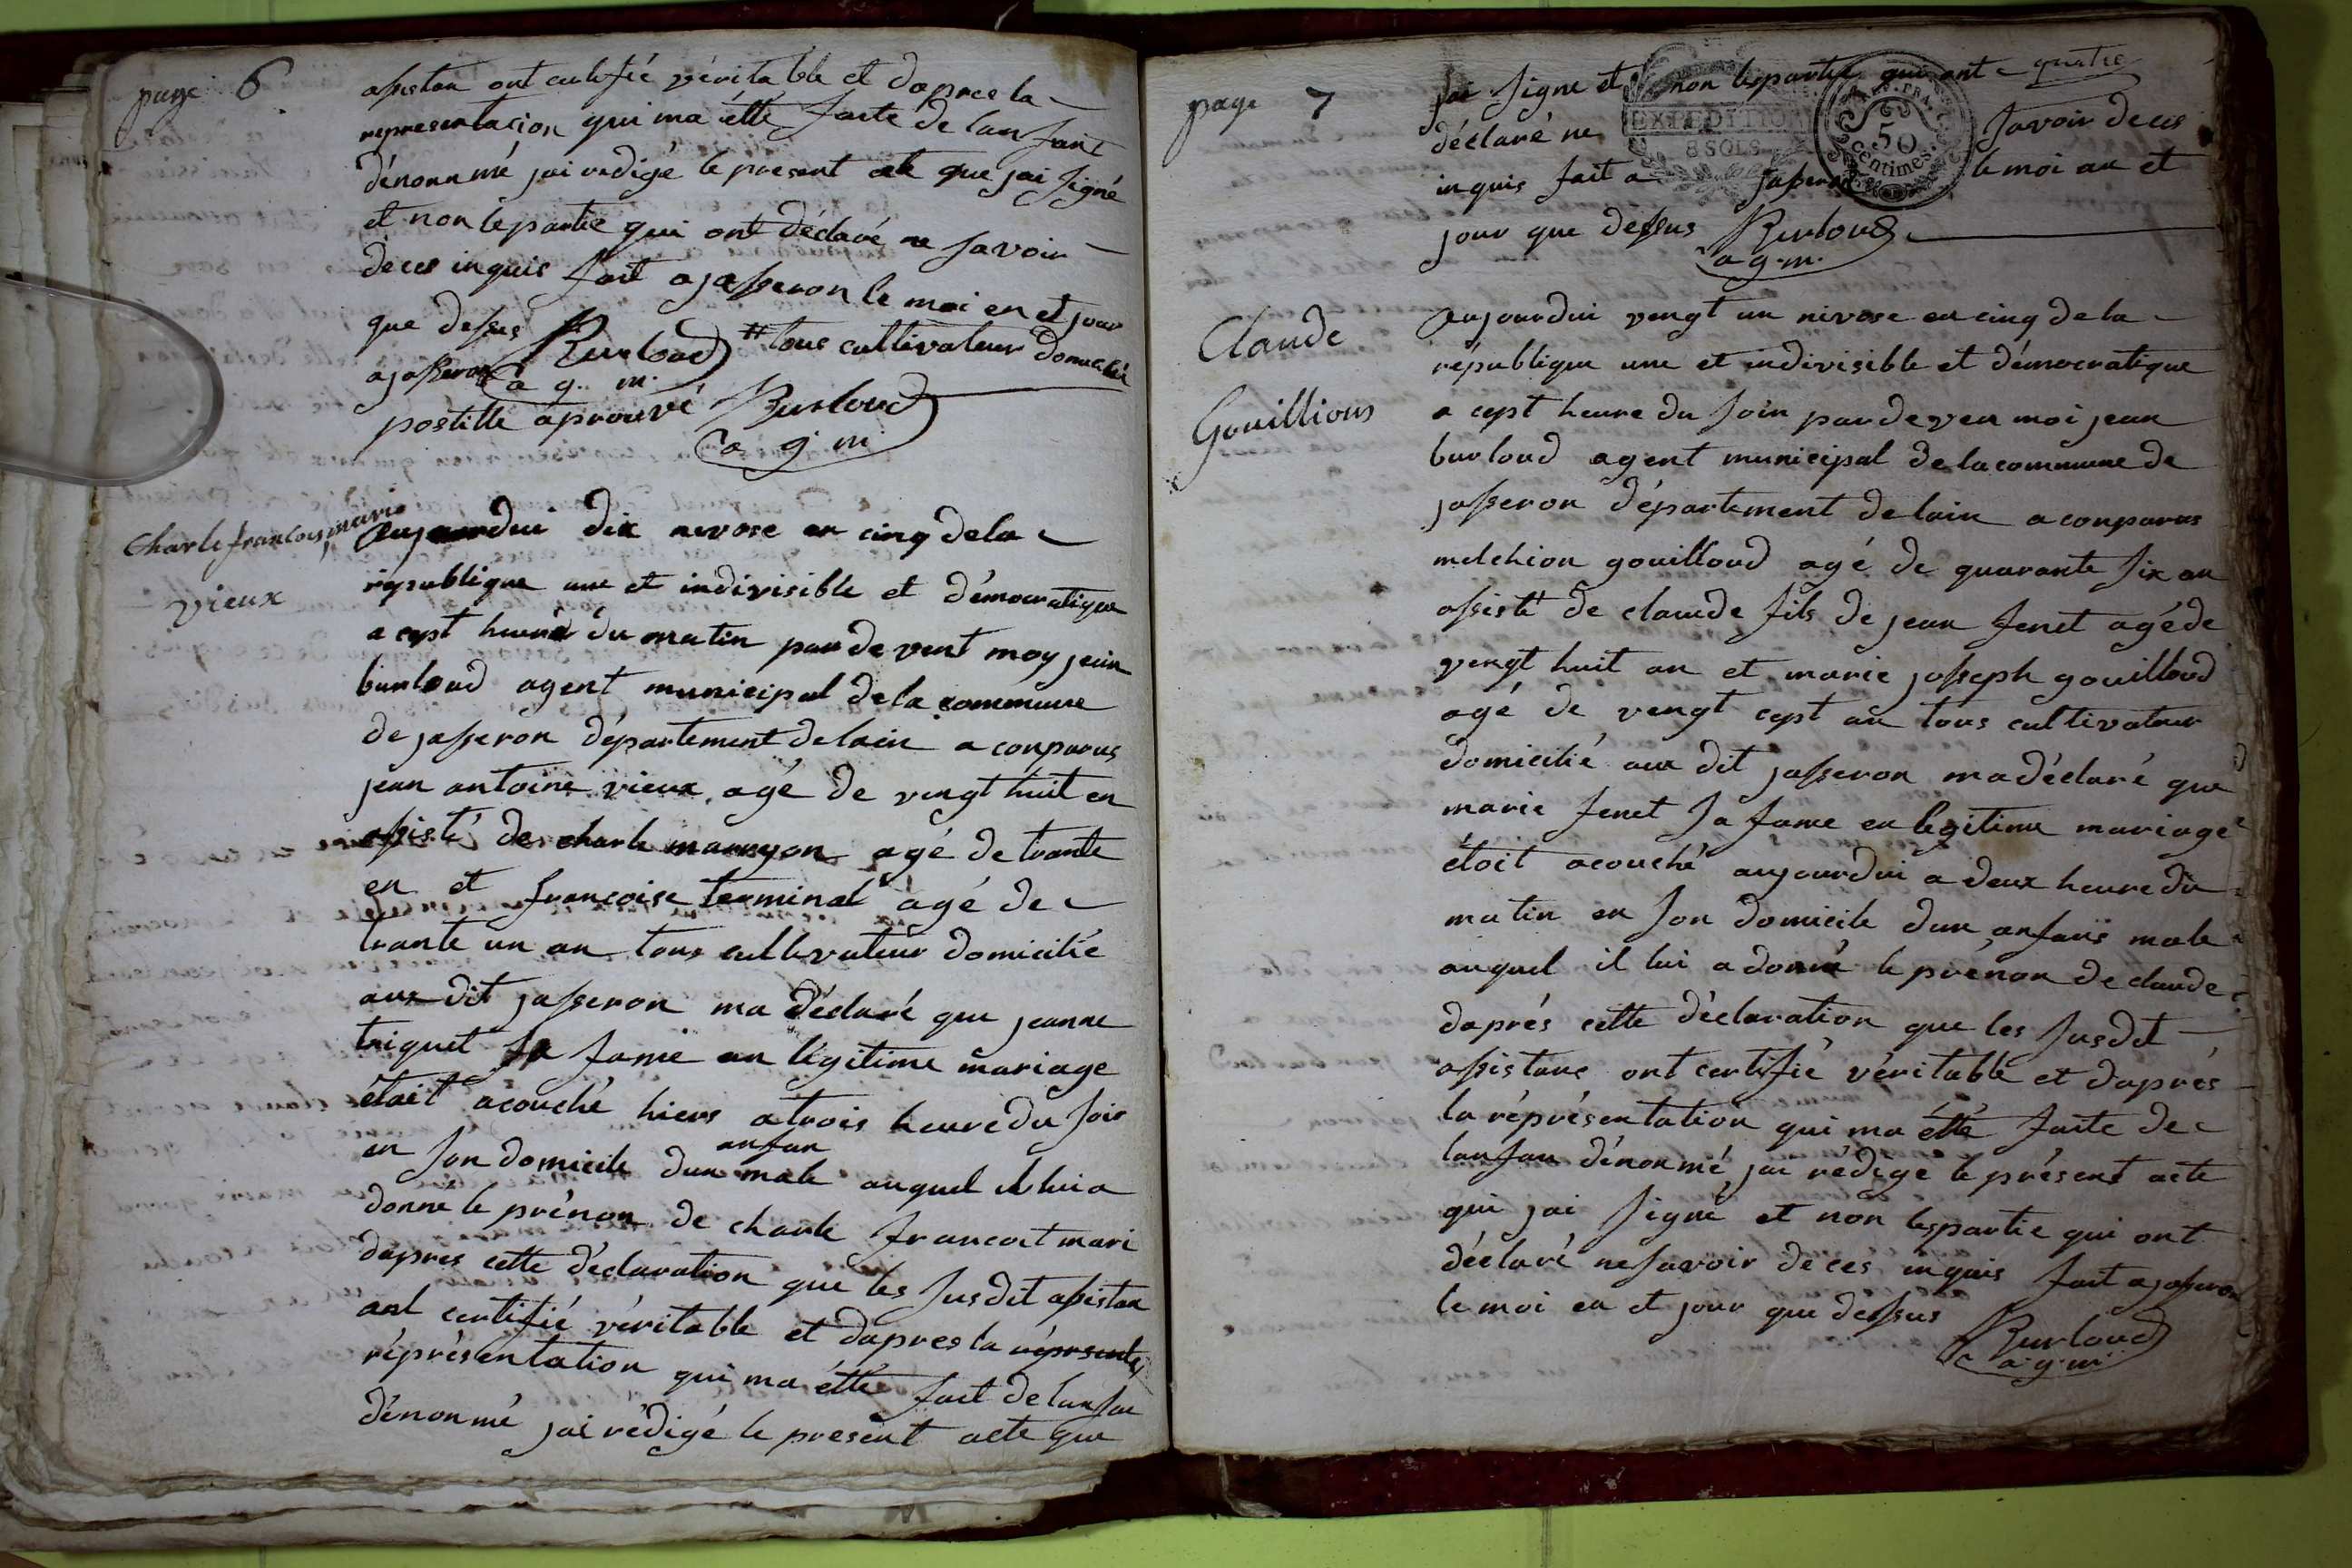 page 6
assistan ont certifié véritable et dapree la
representation qui ma étté faite de lanfant
dénonmé jai redigé le present acte que jai signé
et non lepartie qui ont déclaré ne savoir
de ces inquis fait a jasseron le moi en et jour
que dessus Burloud # tous cultivateur domicilié
a jasseron a g. m.
postille aprouvé Burloud
a g m
Charle francois marie
vieux
aujourdui dix nivose en cinq dela
république une et indivisible et démocratique
a cept heure du matin pardevent moy jean
burloud agent municipal dela commune
de jasseron département delain a conparus
jean antoine vieux agé de vengt huit en
assisté de charle mannyon agé de trante
en et francoise terminal agé de
trante un an tous cultivateur domicilié
aux dit jasseron ma déclaré que jeanne
triquet sa fame an légitime mariage
était acouché hiers a trois heure du soir
anfan
en son domicile dun male auquel il lui a
donné le prénon de charle francoit mari
dapres cette déclaration que les susdit assistan
ont certifié véritable et dapres la réprsente
réprésentation qui ma étté fait de lanfan
dénonmé jai rédigé le present acte que
page 7
jai signe et non lespartie qui ont quatre
déclaré ne savoir de ces
EXPEDITION
8 SOLS
50
centimes.
inquis fait a jasseron le moi an et
jour que dessus Burloud
a g. m.
Claude
Gouillious
Aujourdui vengt un nivose en cinq de la
république une et indivisible et démocratique
a cept heure du soir pardeven moi jean
burloud agent municipal de la commune de
jasseron département delain a conparus
melchion gouilloud agé de quarante six an
assisté de claude fils de jean fenet agé de
vengt huit an et marie josseph gouilloud
agé de vengt cept an tous cultivateur
domicilié aux dit jasseron ma déclaré que
marie fenet sa fame en legitime mariage
étoit acouché aujourdui a deux heure du
matin en son domicile dun anfans male
auquel il lui a donné le prénon de claude
daprés cette déclaration que les susdit
assistans ont certifié véritable et daprés
la réprésentation qui ma étté faite de
lanfan dénonmé jai rédigé le présent acte
qui jai signé et non lespartie qui ont
déclaré ne savoir de ces inquis fait a jasseron
le moi en et jour que dessus
Burloud
a g m